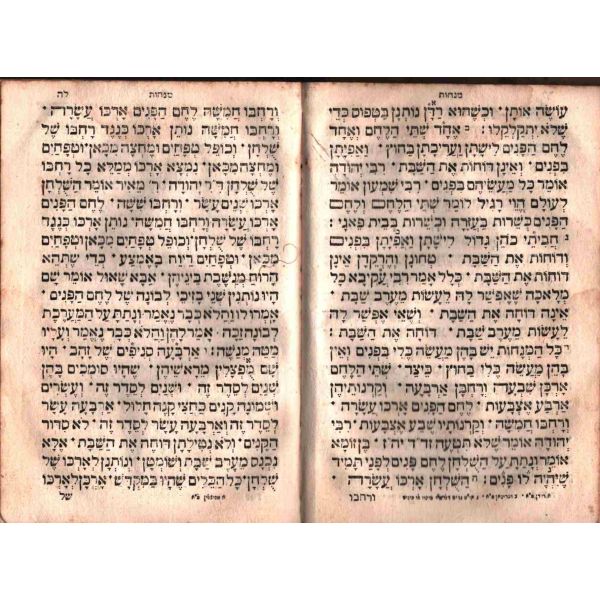 מנחות
עושה אותן · וכשהוא רדן נותנן בטפוס כדי
שלא יתקלקלו : ב אחד שתי הלחם ואחד
לחם הפנים לישתן ועריכתן בחוץ · ואפיתן
בפנים · ואינן דוחות את השבת · רבי יהודה
אומר כל מעשיהם בפנים · רבי שמעון אומר
לעולם הוי רגיל לומר שתי הלחם ולחם
הפנים כשרות בעזרה וכשרות בבית פאגי :
ג חביתי כהן גדול לישתן ואפיתן בפנים
ודוחות את השבת · טחונן והרקדן אינן
דוחות את השבת · כלל אמר רבי עקיבא כל
מלאכה שאפשר לה לעשות מערב שבת
אינה דוחה את השבת · ושאי אפשר לה
לעשות מערב שבת · דוחה את השבת :
ד כל המנחות יש בהן מעשה כלי בפנים ואין
בהן מעשה כלי בחוץ · כיצד · שתי הלחם
ארכן שבעה ורחבן ארבעה · וקרנותיהן
ארבע אצבעות · לחם הפנים ארכו עשרה
ורחבו חמשה וקרנותיו שבע אצבעות · רבי
יהודה אומר שלא תטעה זד״ד יה״ז · בן זומא
אומר ונתת על השלחן לחם פנים לפני תמיד
שיהיה לו פנים : ה השלחן ארכו עשרה
ורחבו
מנחות לה
ורחבו חמשה לחם הפנים ארכו עשרה ·
ורחבו חמשה נותן ארכו כנגד רחבו של
שלחן · וכופל טפחים ומחצה מכאן · וטפחים
ומחצה מכאן · נמצא ארכו ממלא כל רחבו
של שלחן ד״ר יהודה · ר׳ מאיר אומר השלחן
ארכו עשרה · ורחבו ששה · לחם הפנים
ארכו עשרה ורחבו חמשה · נותן ארכו כנגד
רחבו של שלחן · וכופל טפחים מכאן · וטפחים
מכאן · וטפחים ריוח באמצע · כדי שתהא
הרוח מנשבת ביניהן · אבא שאול אומר שם
היו נותנין שני בזיכי לבונה של לחם הפנים ·
אמרו לו והלא כבר נאמר ונתת על המערכת
לבונה זכה · אמר להן והלא כבר נאמר ועליו
מטה מנשה : ו ארבעה סניפים של זהב · היו
שם מפצלין מראשיהן · שהיו סומכים בהן
שנים לסדר זה · ושנים לסדר זה · ועשרים
ושמונה קנים כחצי קנה חלול · ארבעה עשר
לסדר זה וארבעה עשר לסדר זה · לא סדור
הקנים · ולא נטילתן דוחה את השבת · אלא
נכנס מערב שבת ושומטן · ונותנן לארכו של
שלחן · כל הכלים שהיו במקדש · ארכן לארכו
של